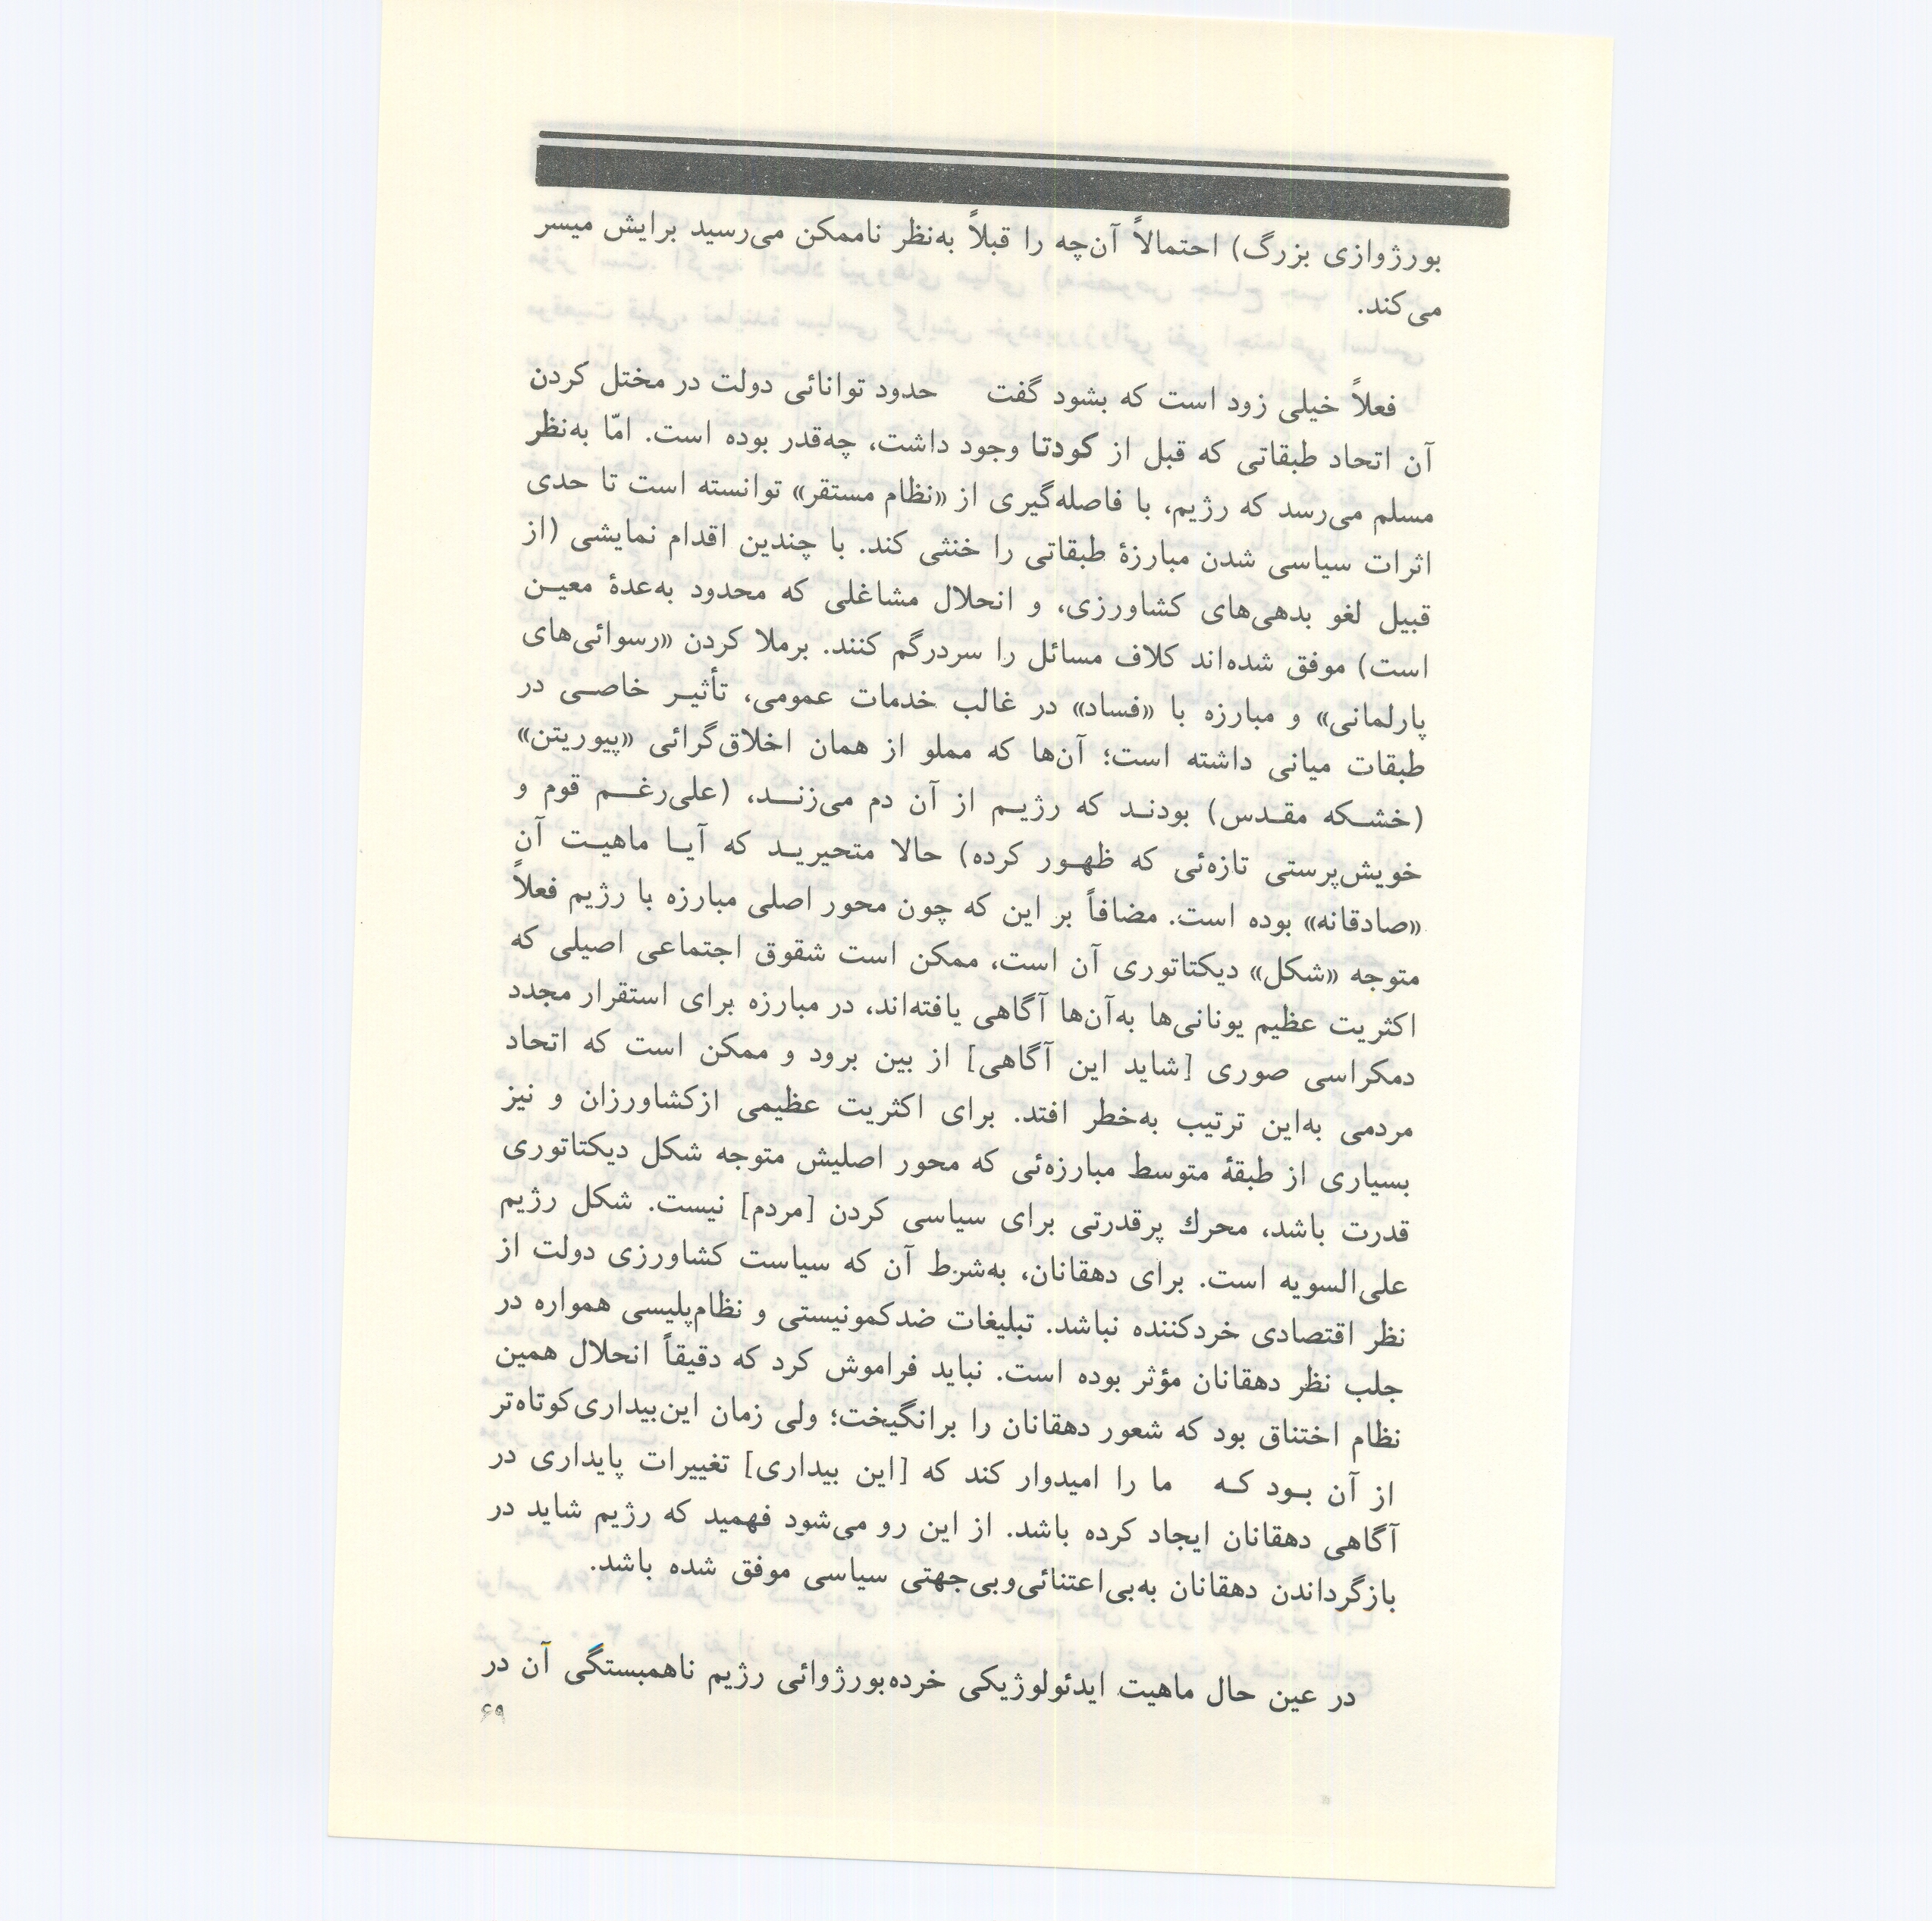 بورژوازی بزرگ) احتمالاً آن‌چه را قبلاً به‌نظر ناممکن می‌رسید برایش میسر
می‌کند.
فعلاً خیلی زود است که بشود گفت حدود توانائی دولت در مختل کردن
آن اتحاد طبقاتی که قبل از کودتا وجود داشت، چه‌قدر بوده است. امّا به‌نظر
مسلم می‌رسد که رژیم، با فاصله‌گیری از «نظام مستقر» توانسته است تا حدی
اثرات سیاسی شدن مبارزهٔ طبقاتی را خنثی کند. با چندین اقدام نمایشی (از
قبیل لغو بدهی‌های کشاورزی، و انحلال مشاغلی که محدود به‌عدهٔ معیـن
است) موفق شده‌اند کلاف مسائل را سردرگم کنند. برملا کردن «رسوائی‌های
پارلمانی» و مبارزه با «فساد» در غالب خدمات عمومی، تأثیـر خاصـی در
طبقات میانی داشته است؛ آن‌ها که مملو از همان اخلاق‌گرائی «پیوریتن»
(خشـکه مقـدس) بودنـد که رژیـم از آن دم می‌زنــد، (علی‌رغــم قوم و
خویش‌پرستی تازه‌ئی که ظهـور کرده) حالا متحیریـد که آیـا ماهیـت آن
«صادقانه» بوده است. مضافاً بر این که چون محور اصلی مبارزه با رژیم فعلاً
متوجه «شکل» دیکتاتوری آن است، ممکن است شقوق اجتماعی اصیلی که
اکثریت عظیم یونانی‌ها به‌آن‌ها آگاهی یافته‌اند، در مبارزه برای استقرار مجدد
دمکراسی صوری [شاید این آگاهی] از بین برود و ممکن است که اتحاد
مردمی به‌این ترتیب به‌خطر افتد. برای اکثریت عظیمی ازکشاورزان و نیز
بسیاری از طبقهٔ متوسط مبارزه‌ئی که محور اصلیش متوجه شکل دیکتاتوری
قدرت باشد، محرك پرقدرتی برای سیاسی کردن [مردم] نیست. شکل رژیم
علی‌السویه است. برای دهقانان، به‌شرط آن که سیاست کشاورزی دولت از
نظر اقتصادی خردکننده نباشد. تبلیغات ضدکمونیستی و نظام‌پلیسی همواره در
جلب نظر دهقانان مؤثر بوده است. نباید فراموش کرد که دقیقاً انحلال همین
نظام اختناق بود که شعور دهقانان را برانگیخت؛ ولی زمان این‌بیداری‌کوتاه‌تر
از آن بـود کـه ما را امیدوار کند که [این بیداری] تغییرات پایداری در
آگاهی دهقانان ایجاد کرده باشد. از این رو می‌شود فهمید که رژیم شاید در
بازگرداندن دهقانان به‌بی‌اعتنائی‌وبی‌جهتی سیاسی موفق شده باشد.
در عین حال ماهیت ایدئولوژیکی خرده‌بورژوائی رژیم ناهمبستگی آن در
۶۹